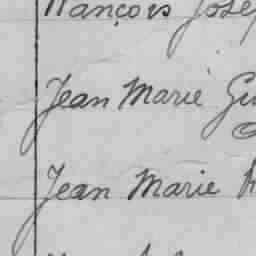 François Jose
Jean Marie Gu
Jean Marie